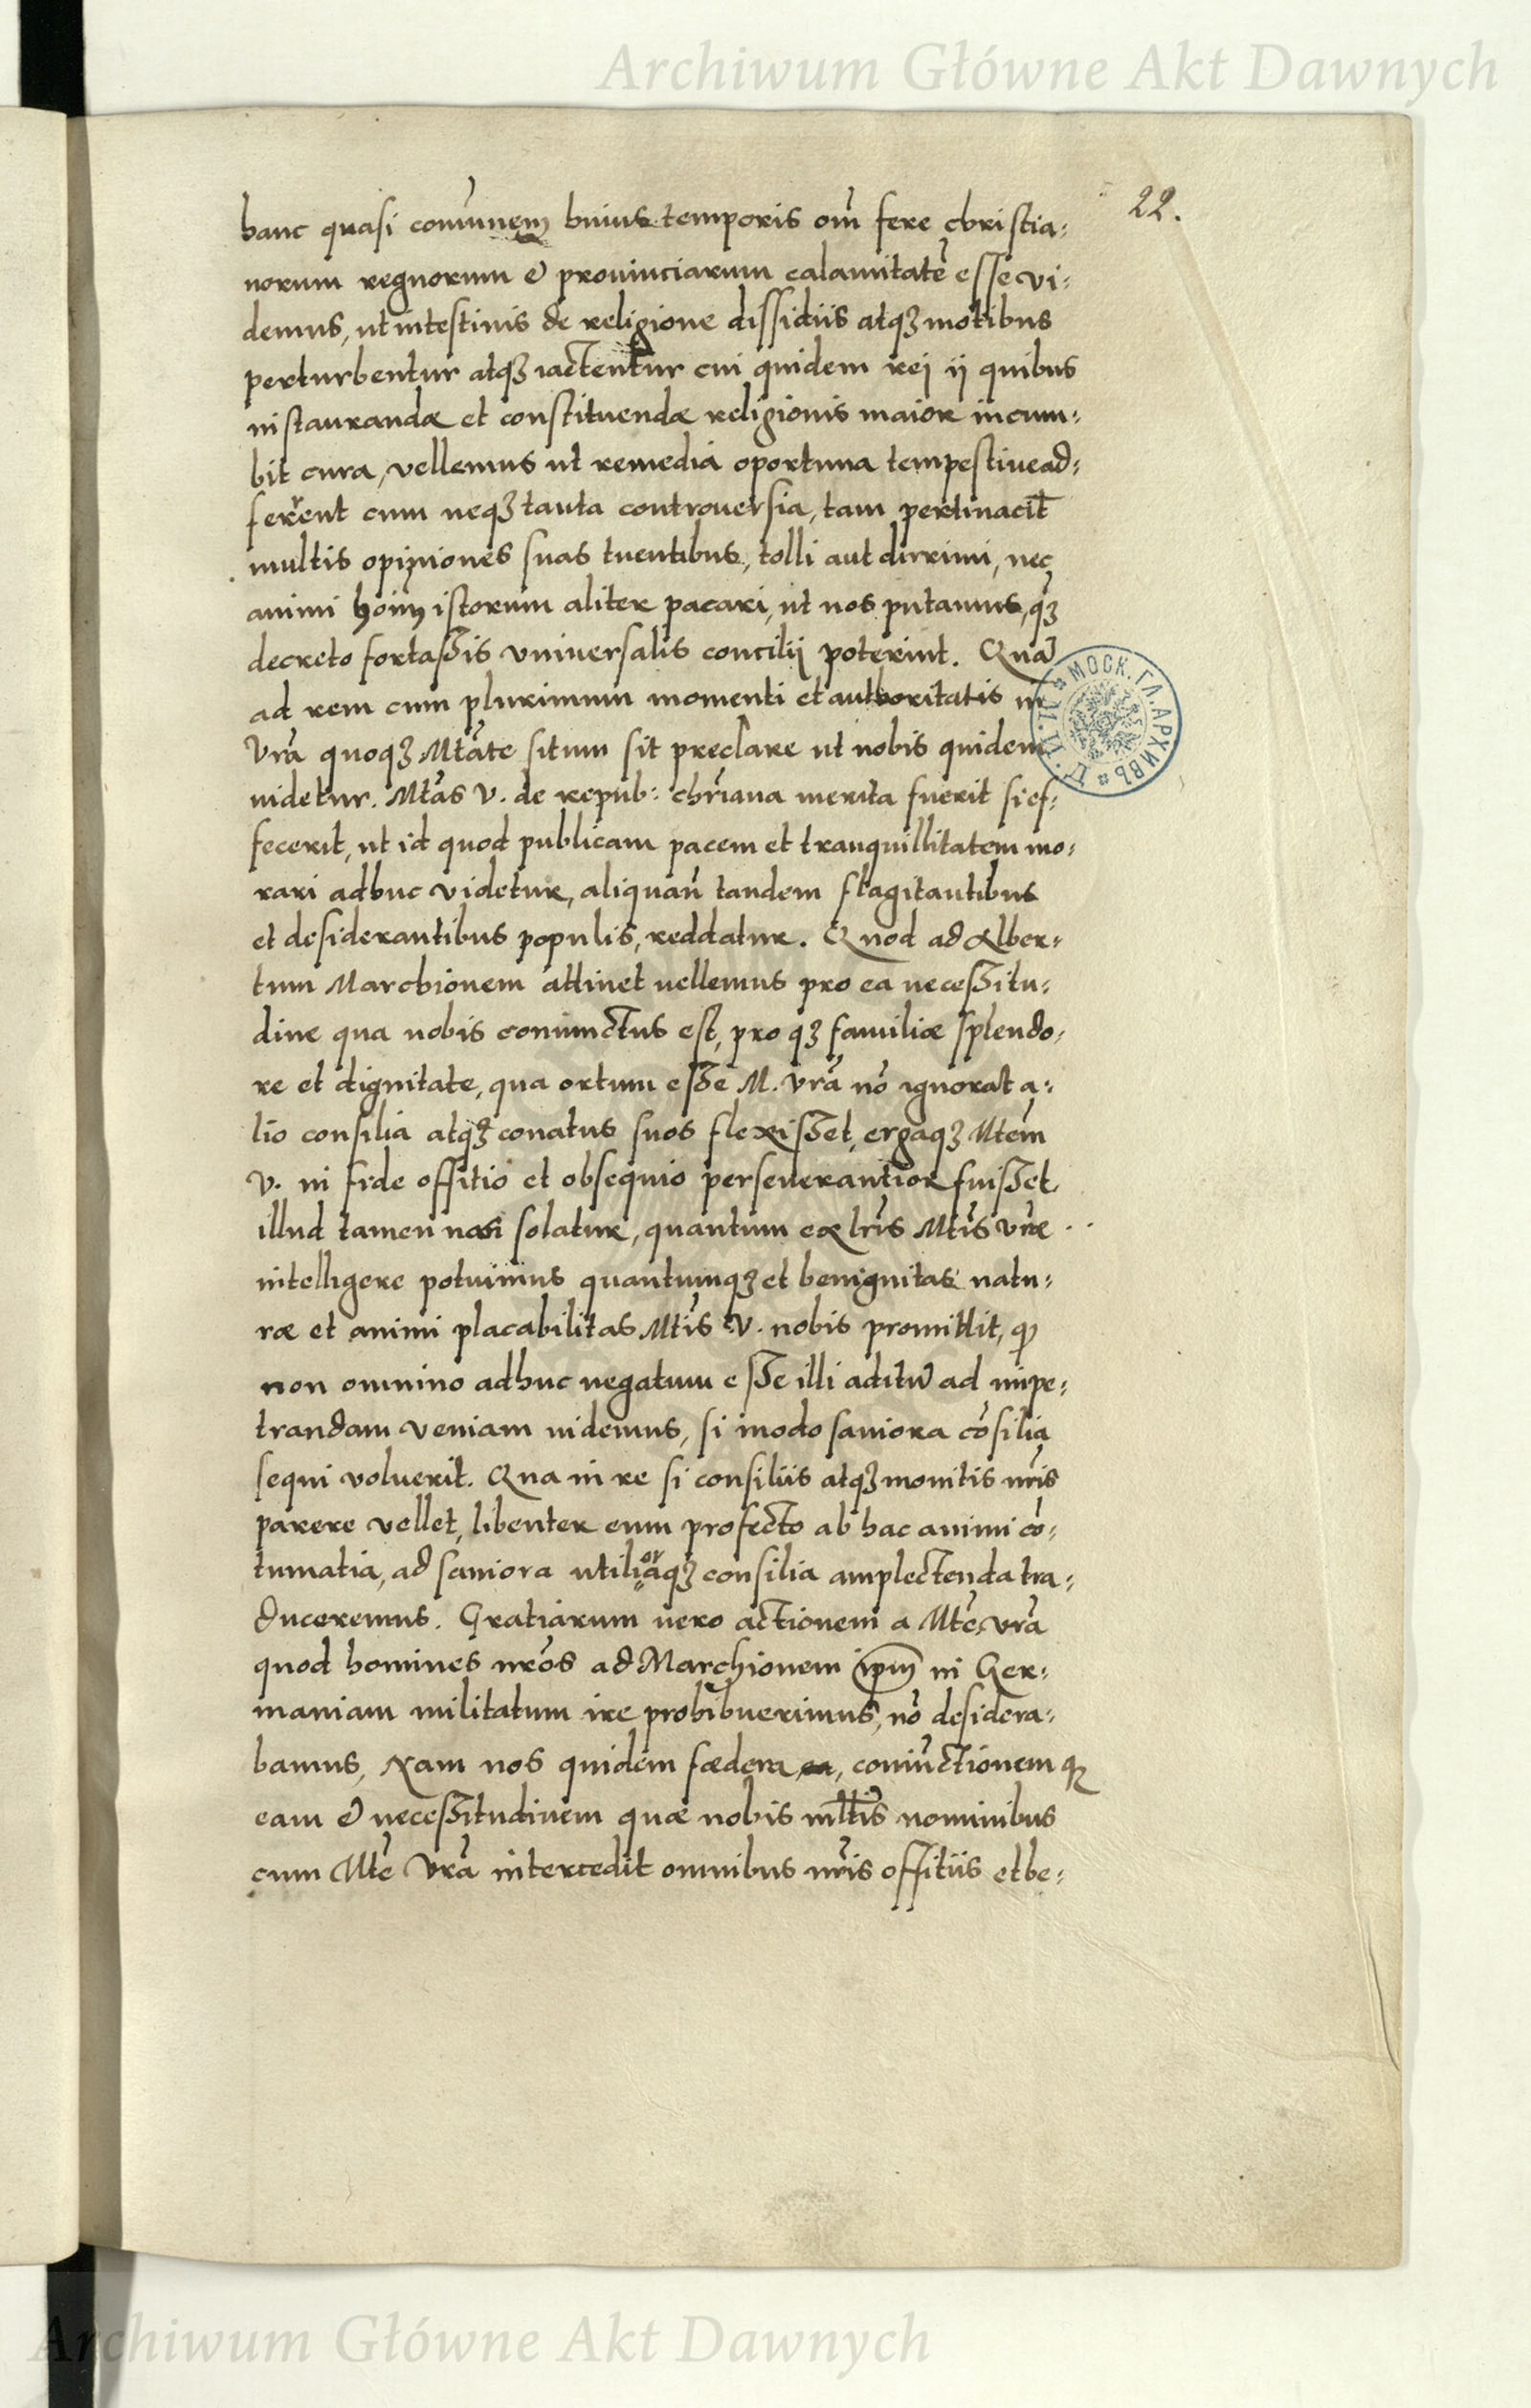 Archiwum Główne Akt Dawnych
22.
hanc quasi comūnem huius temporis om̄ fere christia:
norum regnorum & prouinciarum calamitatē esse vi:
demus, ut intestinis de religione dissidiis atqꝫ motibus
perturbentur atqꝫ iactentur cui quidem rej ij quibus
instaurandæ et constituendæ religionis maior incum:
bit cura, vellemus ut remedia oportuna tempestiue ad:
ferrent cum neqꝫ tanta controuersia, tam pertinacit̄
multis opiniones suas tuentibus, tolli aut dirrimi, nec
animi hoim̄ istorum aliter pacari, ut nos putamus, qꝫ
decreto fortassis vniuersalis concilij poterint. Quā
ad rem cum plurimum momenti et authoritatis in
Vrā quoqꝫ Mtāte situm sit preclare ut nobis quidem
uidetur. Mtās V. de repub: chrīana merita fuerit si ef:
fecerit, ut id quod publicam pacem et tranquillitatem mo:
rari adhuc videtur, aliquan̄ tandem flagitantibus
et desiderantibus populis, reddatur. Quod ad Alber:
tum Marchionem attinet uellemus pro ea necessitu:
dine qua nobis coniunctus est, pro qꝫ familiæ splendo:
re et dignitate, qua ortum esse M. vrā nō ignorat a:
lio consilia atqꝫ conatus suos flexisset, ergaqꝫ Mtem̄
V. in fide offitio et obsequio perseuerantior fuisset,
illud tamen nos solatur, quantum ex lrīs Mtīs vræ
intelligere potuimus quantumqꝫ et benignitas natu:
ræ et animi placabilitas Mtīs V. nobis promittit, ꝙ
non omnino adhuc negatum esse illi aditū ad impe:
trandam veniam uidemus, si modo saniora cōsilia
sequi voluerit. Qua in re si consiliis atqꝫ monitis nrīs
parere vellet, libenter eum profecto ab hac animi cō:
tumatia, ad saniora utilioraqꝫ consilia amplectenda tra:
duceremus. Gratiarum uero actionem a Mtē vrā
quod homines nrōs ad Marchionem ipm̄ in Ger:
maniam militatum ire prohibuerimus, nō desidera:
bamus, Nam nos quidem fædera, ea, coniūctionemqꝫ
eam & necessitudinem quæ nobis mltīs nominibus
cum Mtē Vrā intercedit omnibus nrīs offitiis et be:
МОСК. ГЛ. АРХИВЪ
Archiwum Główne Akt Dawnych